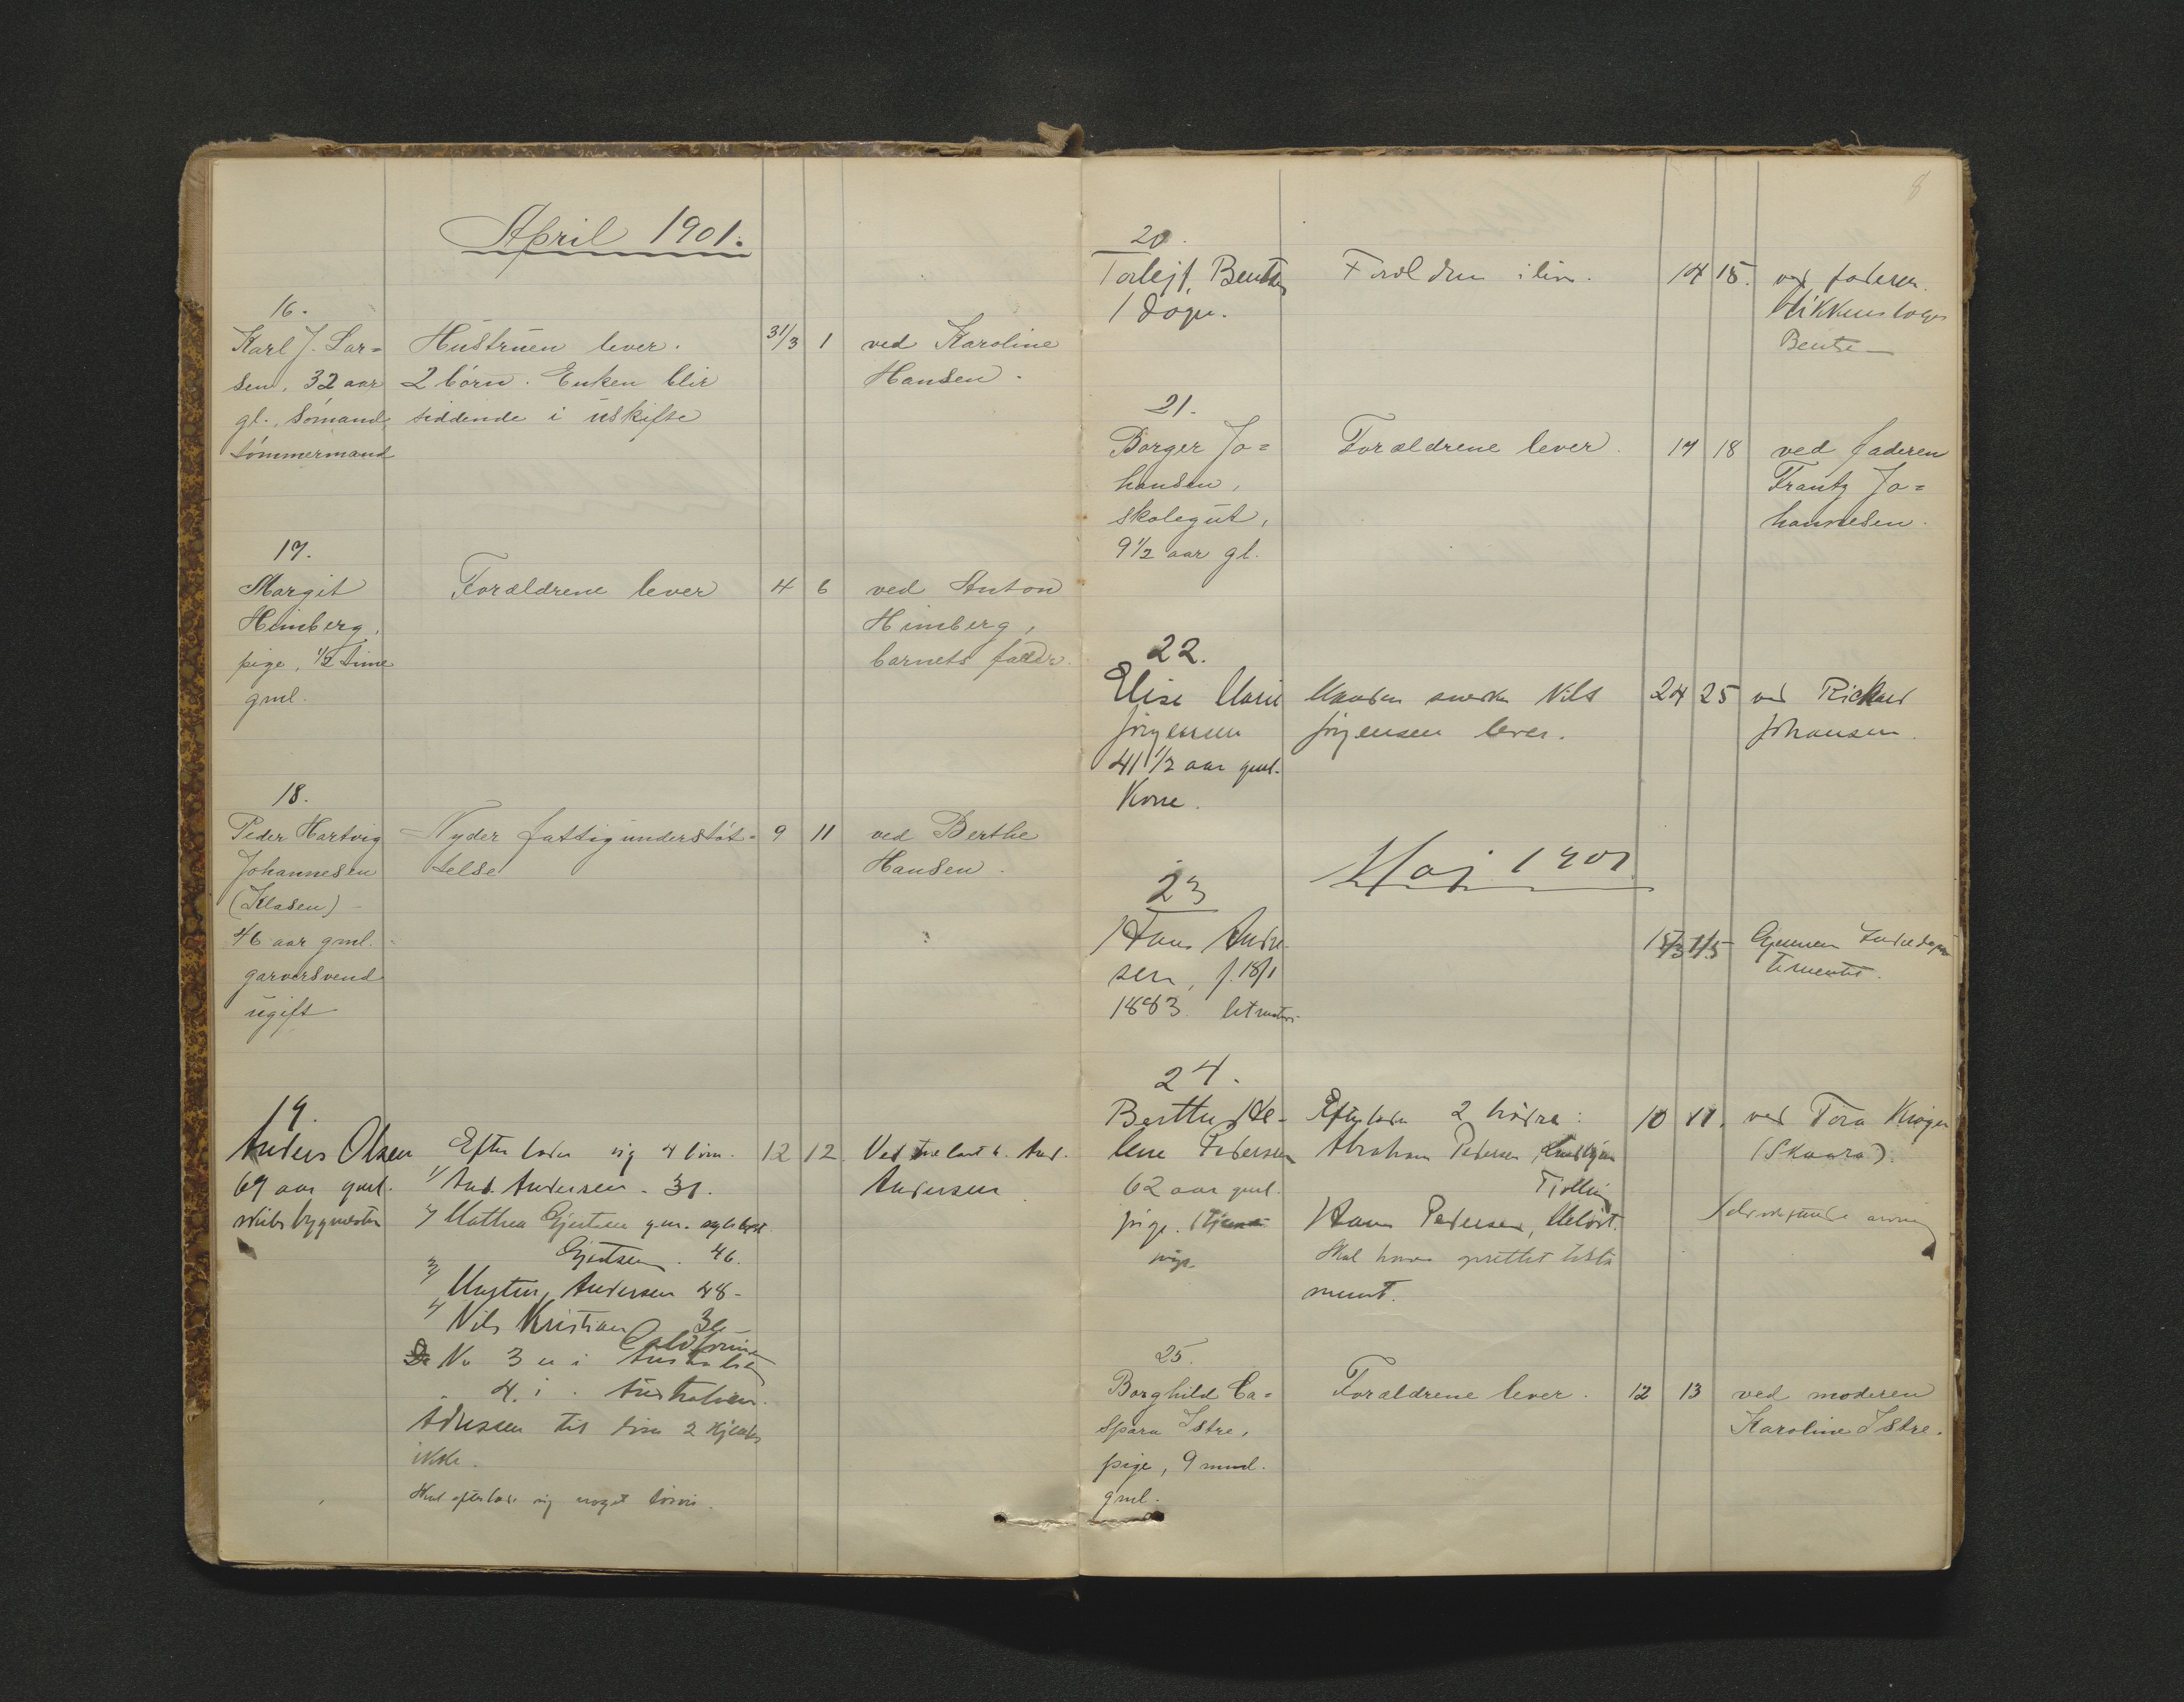 April 1901.
16.
Karl J. Lar=
sen, 32 aar
gl., sömand,
tömmermand
Hustruen lever.
2 börn. Enken blir
siddende i uskifte
31/3 1
ved Karoline
Hansen.
17.
Margit
Himberg,
pige, 1/2 time
gml.
Forældrene lever
4 6
ved Anton
Himberg,
barnets fader.
18.
Peder Hartvig
Johannesen
(Klasen)
46 aar gml.
garversvend
ugift
Nyder fattigunderstöt=
telse
9 11
ved Berthe
Hansen.
19.
Anders Olsen
67 aar gml.
skibsbygmester
Efterlader sig 4 börn.
1/ And. Andersen. 31.
2/ Mathea Gjertsen gm.
Gjertsen. 46.
3/ Andersen 48-
4/ Nils Kristian
Californien
No 3 er i
4. i Australien.
Adressen til disse 2 kjendes
ikke.
Skal efterlade sig noget
12 12
Ved And.
Andersen
8
20.
Torlejf Bentsen
1 dögn.
Forældrene i live.
14 15.
ved faderen
blikkenslager
Bentsen
21.
Borger Jo=
hansen,
skolegut,
9 1/2 aar gl.
Forældrene lever.
17 18
ved faderen
Frantz Jo=
hannesen.
22.
Elise Marie
Jörgensen
41 1/2 aar gml.
Kone.
Manden snedker Nils
Jörgensen lever.
24 25
ved Rickard
Johansen.
Maj 1901
23
Hans Andre-
sen, f. 18/1
1883.
Gjennem Indredepar
tementet.
24.
Berthe He-
lene Pedersen
62 aar gml.
pige.
Efterlader 2 brödre:
Abraham Pedersen
Tjølling
Hans Pedersen,
Skal have oprettet testa
ment.
10 11.
ved Tora Kröger
(Skaara).
25.
Borghild Ca=
spara Istre,
pige, 9 mnd.
gml.
Forældrene lever.
12 13
ved moderen
Karoline Istre.